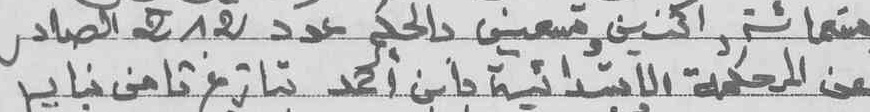 مستمائة, اثنين وتسعين والحكم عدد 212 الصادر
عن المحكمة الابتدائية بابن أحمد بتاريخ ثامن يناير